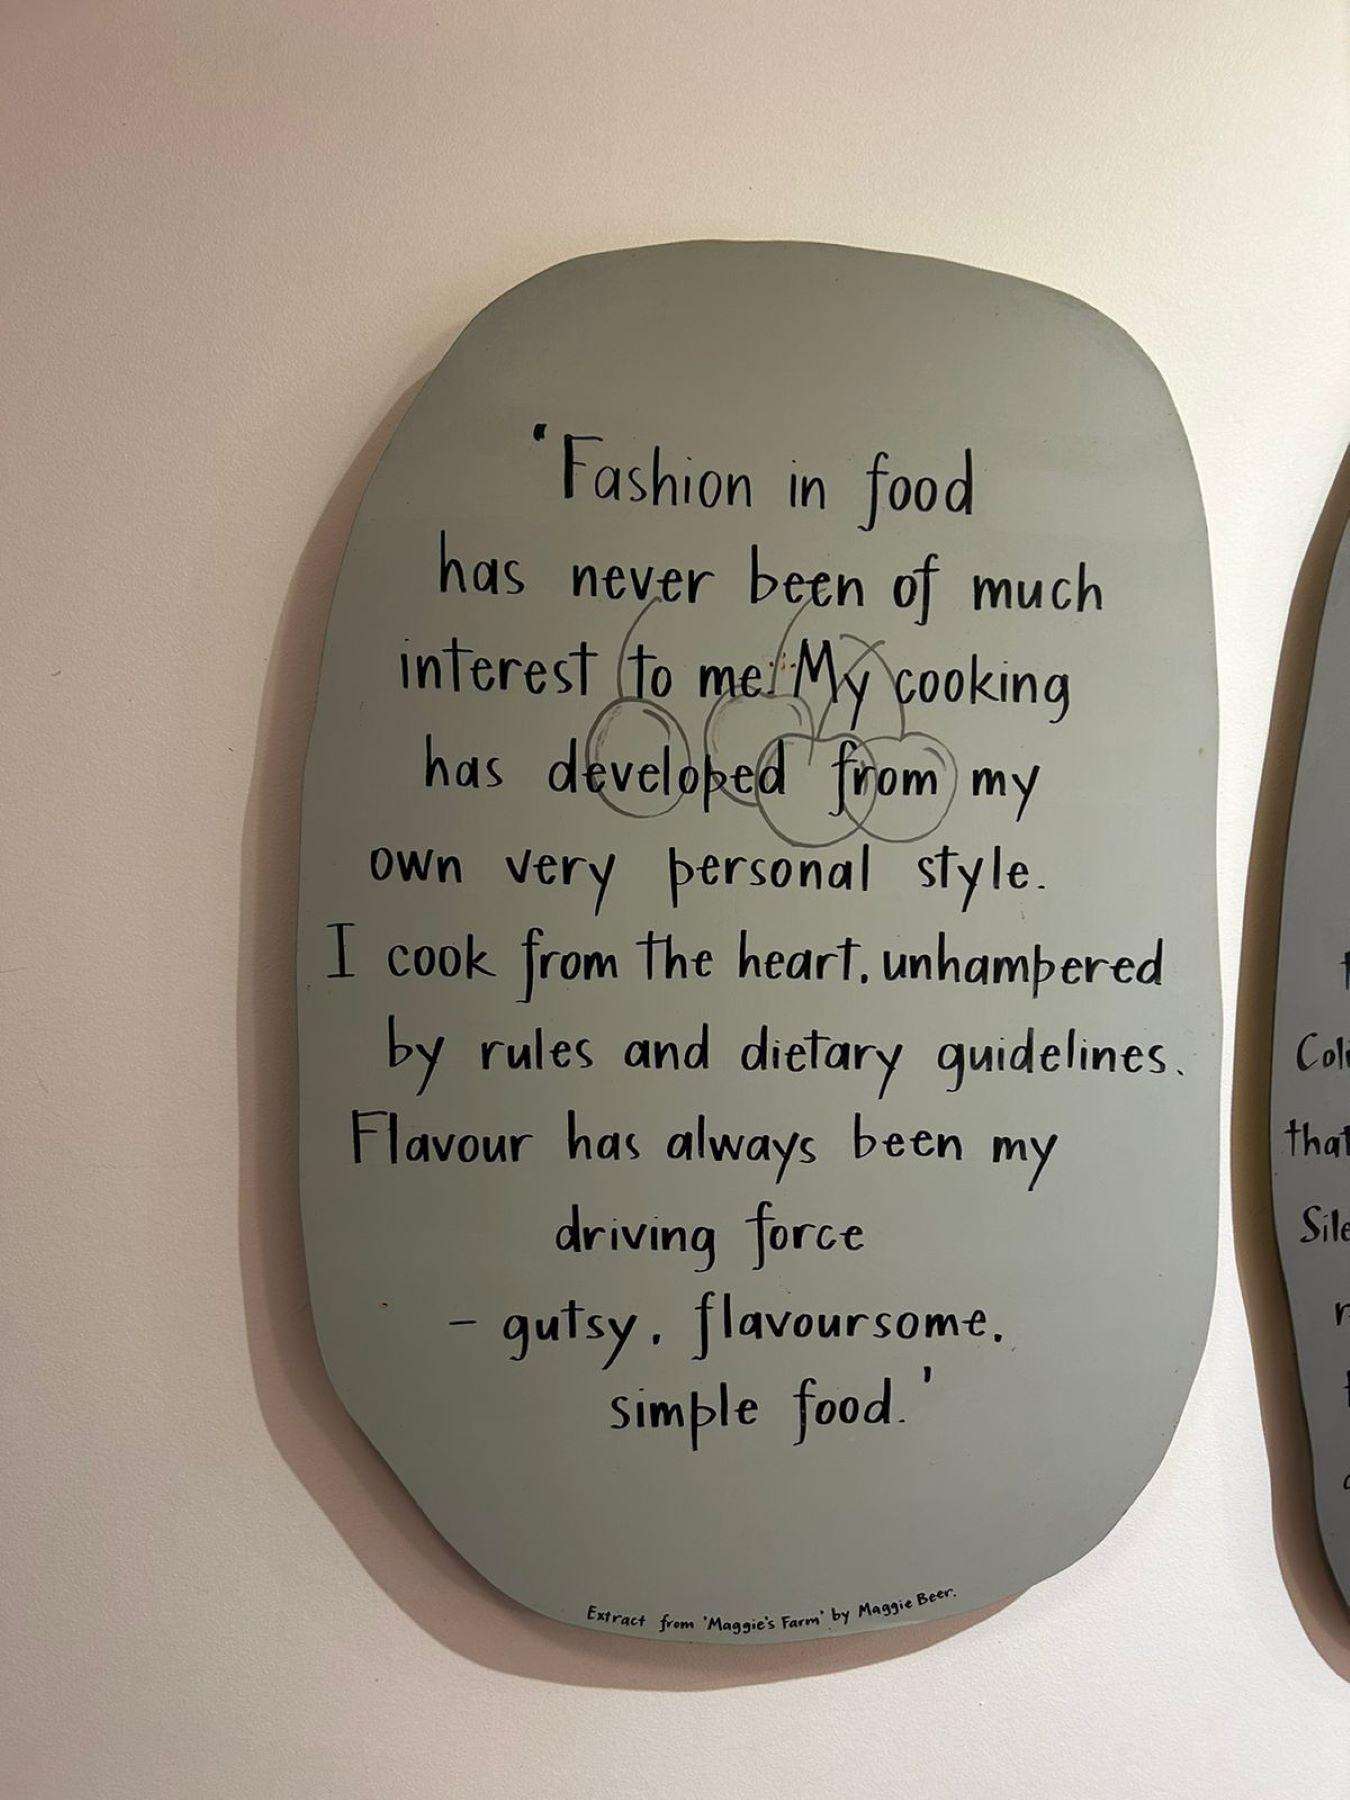 'Fashion in food
has never been of much
interest to me. My cooking
has developed from my
own very personal style.
I cook from the heart, unhampered
by rules and dietary guidelines.
Flavour has always been my
driving force
- gutsy, flavoursome,
simple food.'
Extract from 'Maggie's Farm' by Maggie Beer.
that